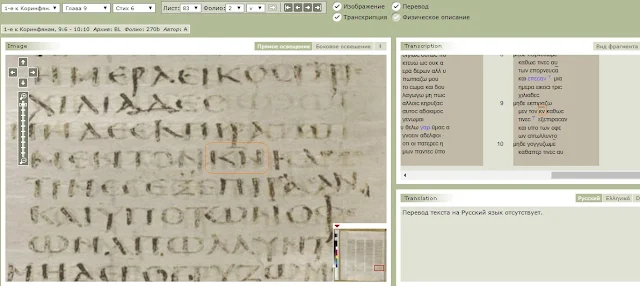 1-е к Коринфян. Глава 9 Стих 6 Лист: 83 Фолио: 2 v
Изображение Перевод
Транскрипция Физическое описание
1-е к Коринфянам, 9:6 - 10:10 Архив: BL Фолио: 270b Автор: A
Image Прямое освещение Боковое освещение
ΗΜΕΡΑΕΙΚΟϹΙ
ΧΙΛΙΑΔΕϹ
ΜΗΔΕΕΚΠΙΡΑ
ΜΕΝΤΟΝΚΝΚΑΘΩ
ΤΙΝΕϹΕΞΕΠΙΡΑϹΑΝ
ΚΑΙΥΠΟΤΩΝΟΦΕ
ΩΝΑΠΩΛΛΥΝΤΟ
ΜΗΔΕΓΟΓΓΥΖΩΜΕ
Transcription Вид фрагмента
το σωμα και δου
λαγωγω μη πως
αλλοις κηρυξας
αυτος αδοκιμος
γενωμαι
ου θελω γαρ ϋμας α
γνοειν αδελφοι
οτι οι πατερες η
μων παντες ϋπο
καθως τινες αυ
των επορνευσα
και επεσαν μια
ημερα εικοσι τρις
χιλιαδες
9 μηδε εκπιραζω
μεν τον κν καθως
τινες εξεπιρασαν
και υπο των οφε
ων απωλλυντο
10 μηδε γογγυζωμε
καθαπερ τινες αυ
Translation Русский Ελληνικά
Перевод текста на Русский язык отсутствует.